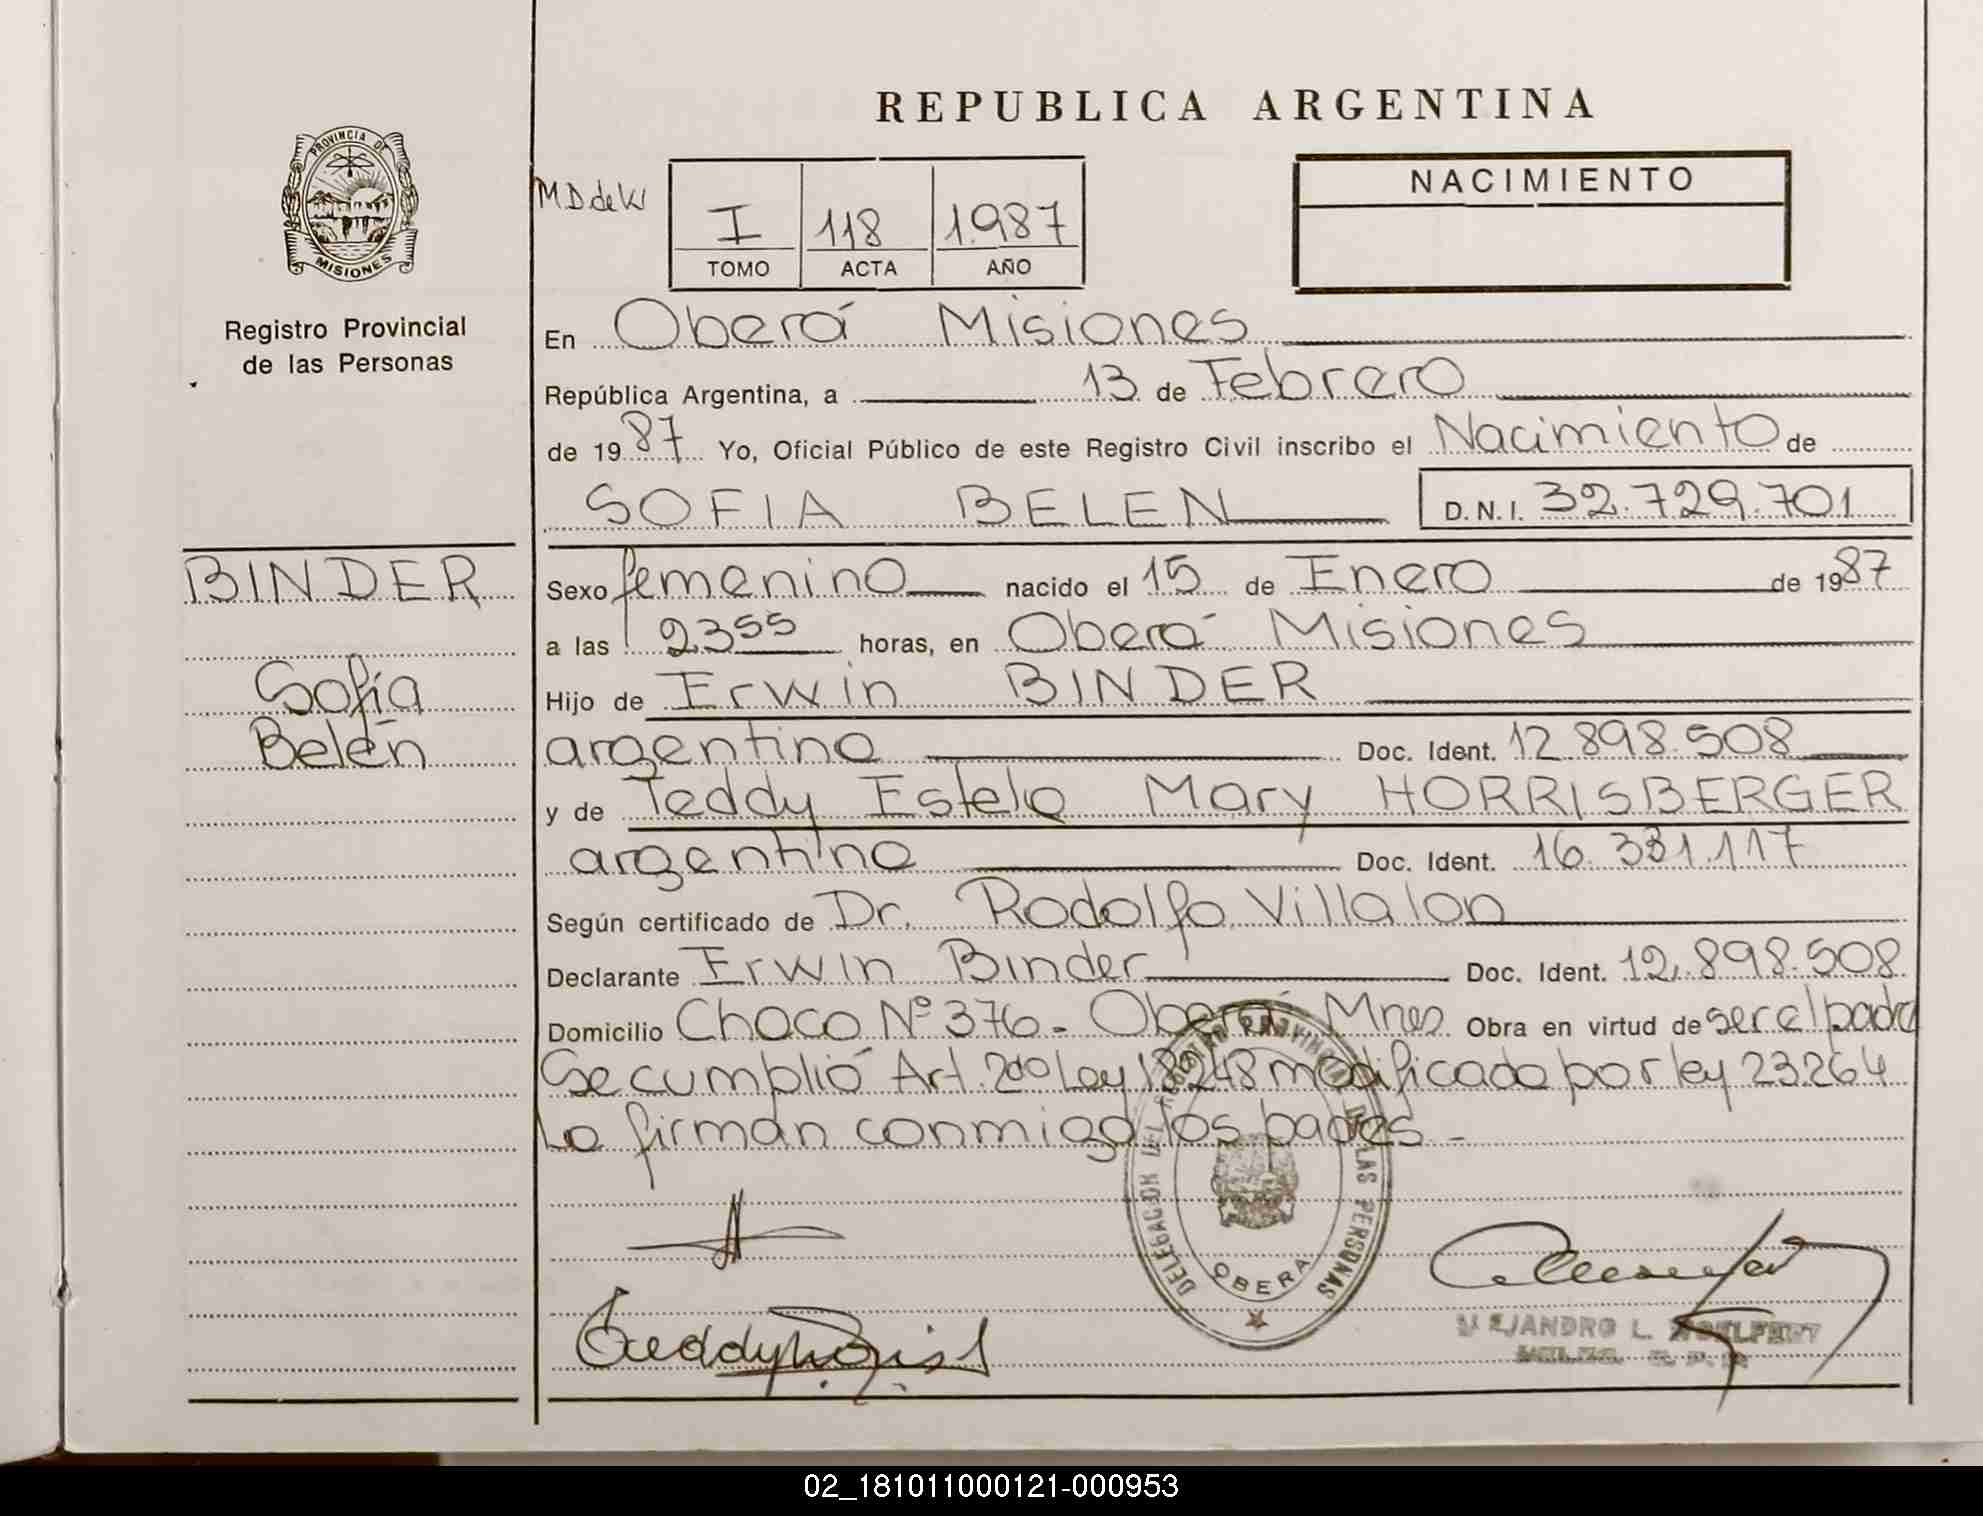 REPUBLICA ARGENTINA
PROVINCIA DE
MISIONES
Registro Provincial
de las Personas
M D de W
I 118 1.987
TOMO ACTA AÑO
NACIMIENTO
En Oberá Misiones
República Argentina, a 13 de Febrero
de 1987 Yo, Oficial Público de este Registro Civil inscribo el Nacimiento de
SOFIA BELEN D.N.I. 32.729.701
BINDER
Sofía
Belén
Sexo femenino nacido el 15 de Enero de 1987
a las 23 55 horas, en Oberá Misiones
Hijo de Erwin BINDER
argentino Doc. Ident. 12.898.508
y de Teddy Estela Mary HORRISBERGER
argentina Doc. Ident. 16.331.117
Según certificado de Dr. Rodolfo Villalon
Declarante Erwin Binder Doc. Ident. 12.898.508
Domicilio Chaco Nº 376 - Oberá Mnes Obra en virtud de ser el padre
Se cumplió Art. 2do Ley 18248 modificado por ley 23.264
La firman conmigo los padres -
DELEGACION DEL REGISTRO PROVINCIAL DE LAS PERSONAS
OBERA
ALEJANDRO L.
02_181011000121-000953